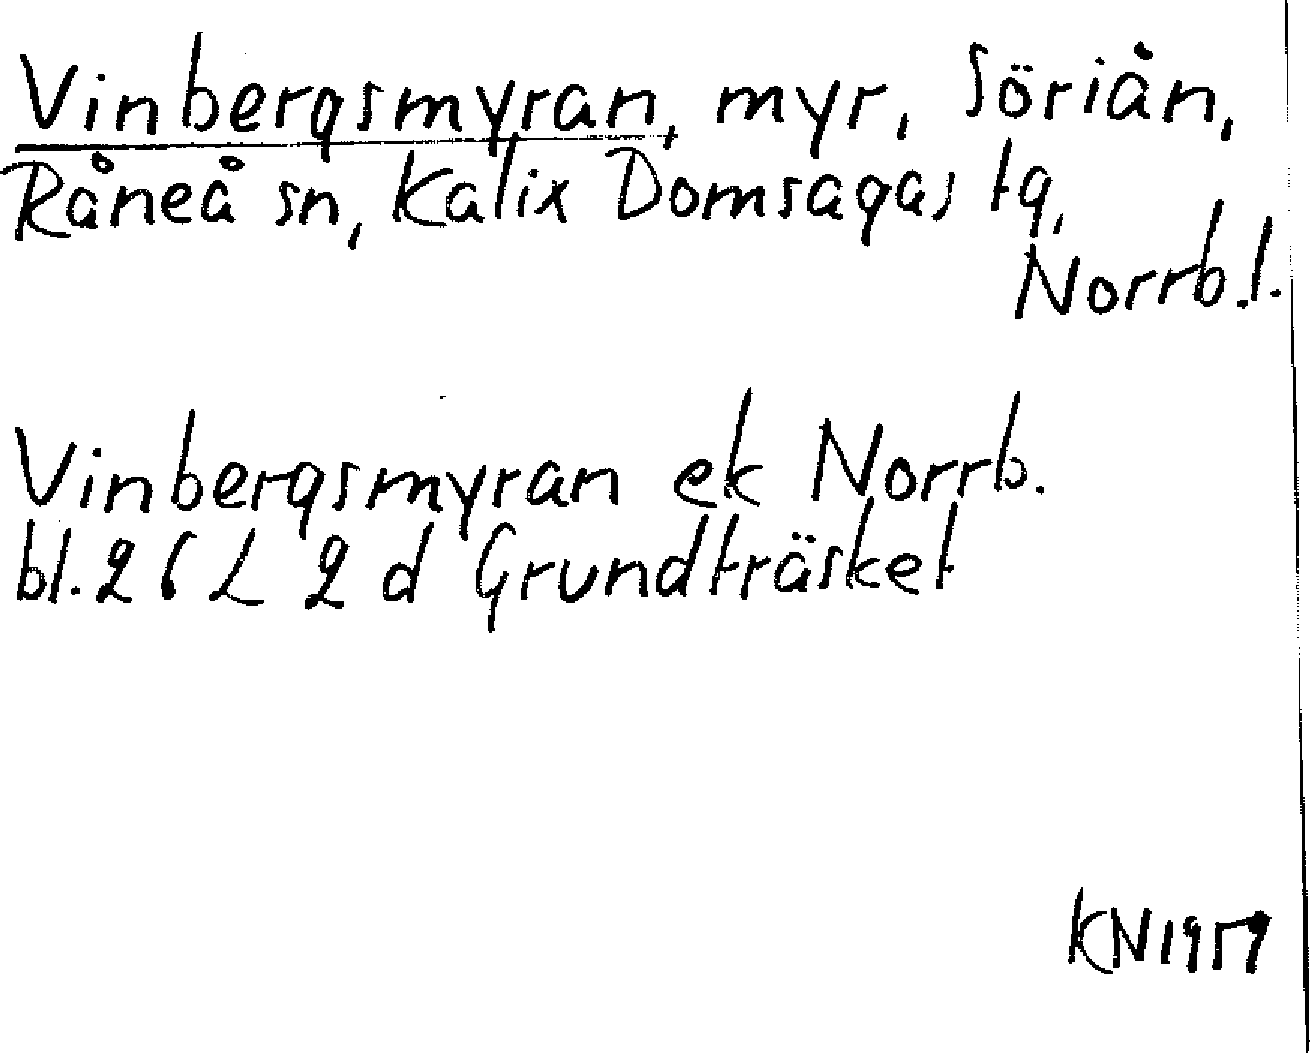 Vinbergsmyran, myr, Söriån,
Råneå sn, Kalix Domsagas tg,
Norrb.l.
Vinbergsmyran ek Norrb.
bl. 26 L 2 d Grundträsket
KN